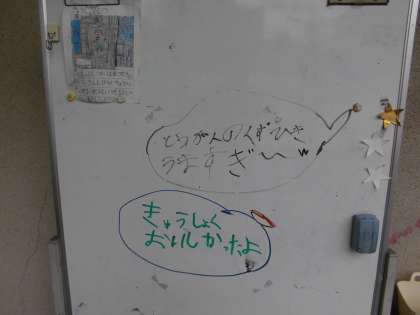 とうがんのくずひき
うますぎぃー
きゅうしょく
おいしかったよ